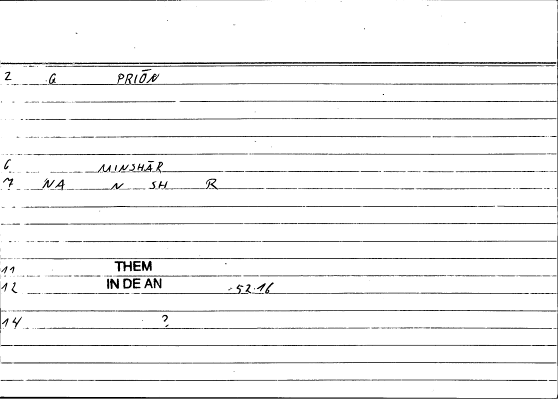 2 G PRIŌN
6 MINSHĀR
7 NA N SH R
11 THEM
12 IN DE AN -52.16
14 ?